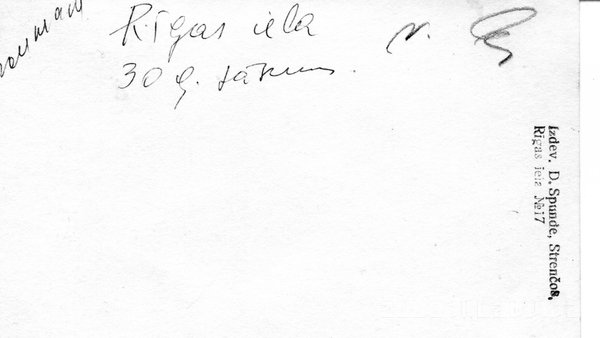 Rīgas iela
30 g. sākums.
Izdev. D. Spunde, Strenčos,
Rīgas iela №17